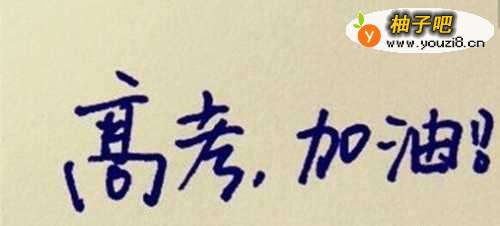 柚子吧
www.youzi8.cn
高考,加油!!